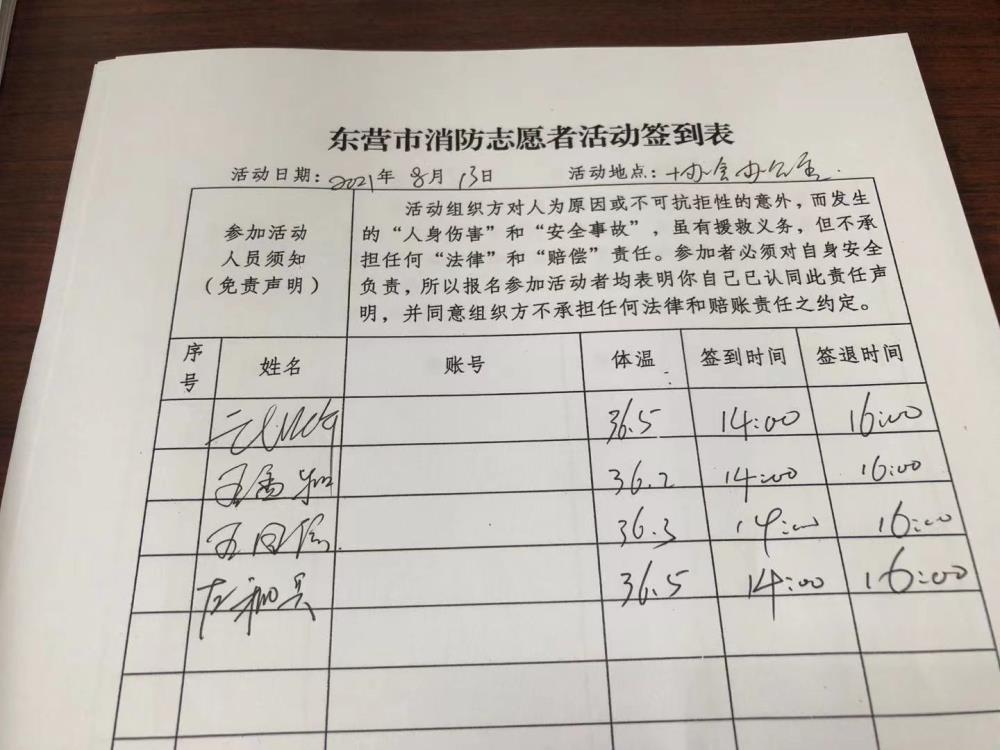 东营市消防志愿者活动签到表
活动日期：2021年 8月 13日 活动地点：协会办公室.
参加活动
人员须知
（免责声明）
活动组织方对人为原因或不可抗拒性的意外，而发生
的“人身伤害”和“安全事故”，虽有援救义务，但不承
担任何“法律”和“赔偿”责任。参加者必须对自身安全
负责，所以报名参加活动者均表明你自己已认同此责任声
明，并同意组织方不承担任何法律和赔账责任之约定。
序号 姓名 账号 体温 签到时间 签退时间
36.5 14:00 16:00
36.2 14:00 16:00
36.3 14:00 16:00
36.5 14:00 16:00